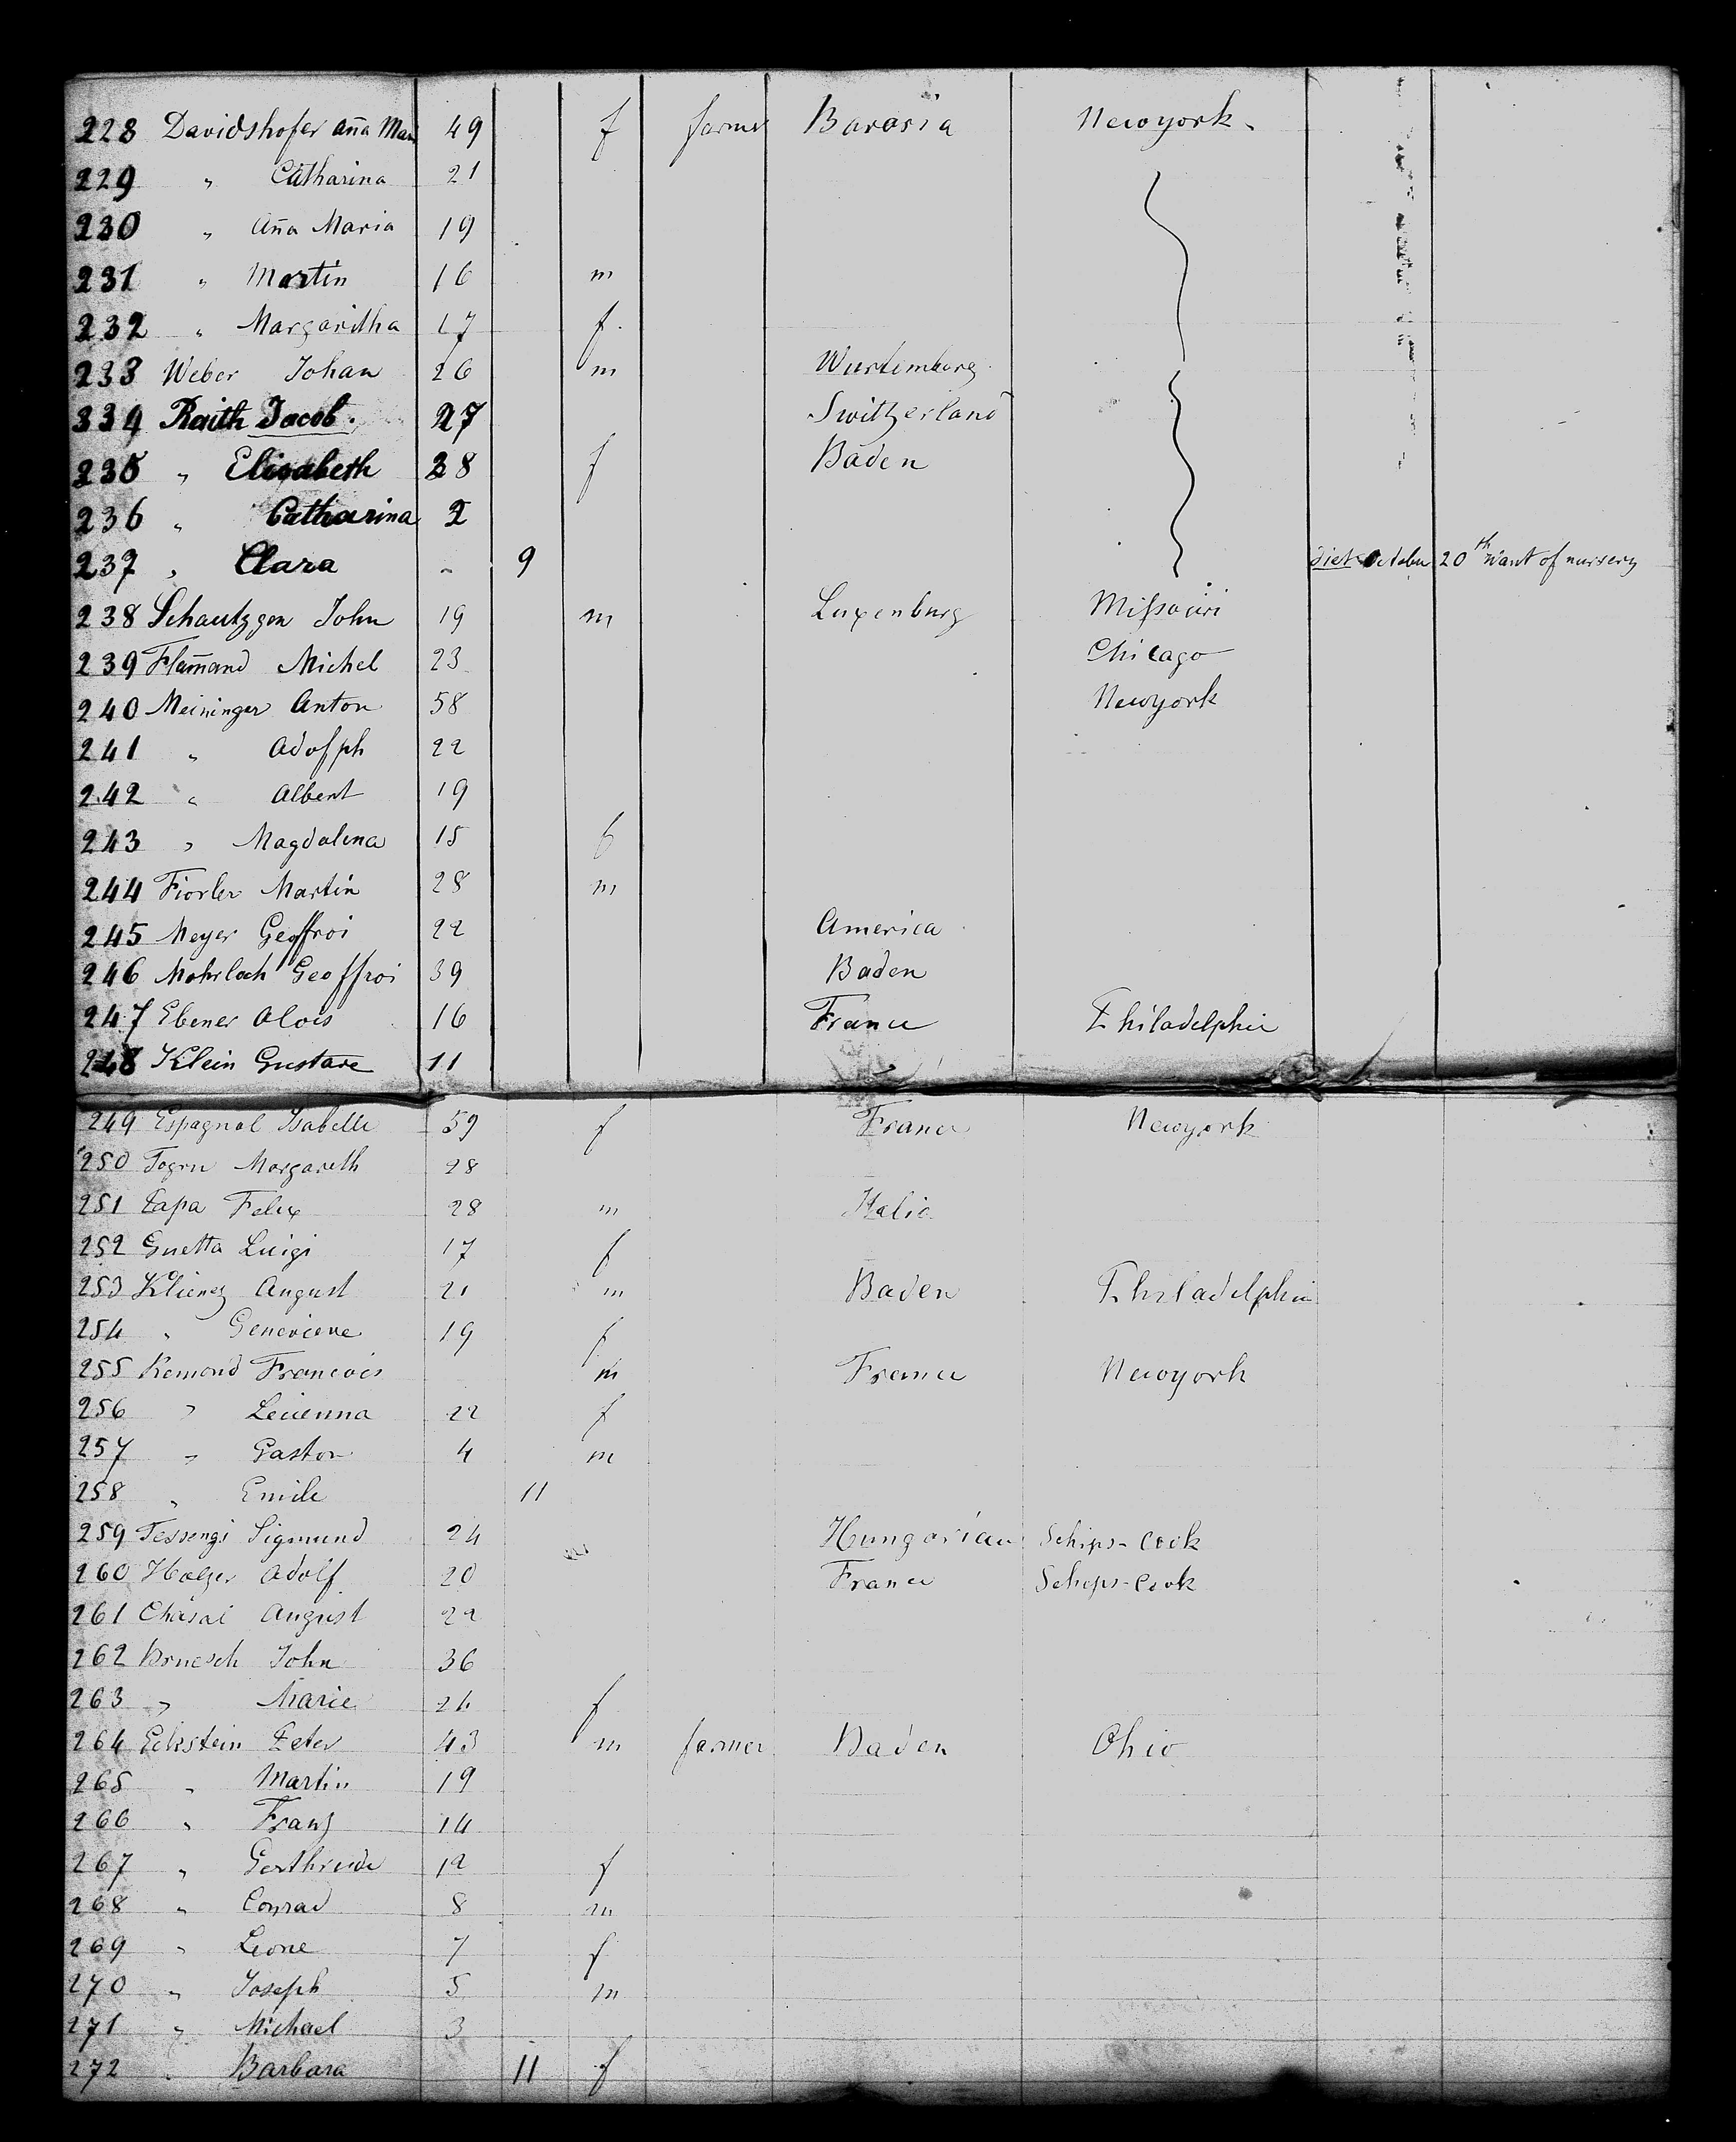 228 Davidshofer Aña Mari 49 f farmer Bavaria Newyork.
229 " Catharina 21
230 " Aña Maria 19
231 " Martin 16 m
232 " Margaritha 17 f.
233 Weber Johan 26 m Wurtemberg
334 Raith Jacob. 27 Switzerland
235 " Elisabeth 28 f Baden
236 " Catharina 2
237 " Clara - 9 diet October 20th want of nursery
238 Schautzgen John 19 m Luxenburg Missouri
239 Flam̄and Michel 23 Chicago
240 Meininger Anton 58 Newyork
241 " Adolph 22
242 " Albert 19
243 " Magdalena 15 f
244 Fiorler Martin 28 m
245 Meyer Geoffroi 22 America
246 Mohrloch Geoffroi 39 Baden
247 Ebener Alois 16 France Philadelphia
248 Klein Gustave 11
249 Espagnol Isabelle 59 f France Newyork
250 Margareth 28
251 Papa Felix 28 m Italia
252 Guetta Luigi 17 f
253 August 21 m Baden Philadelphia
254 " Genevieve 19 f
255 Remond Francois m France Newyork
256 " 22 f
257 " Gaston 4 m
258 " Emile 11
259 Sigmund 24 Hungarian Schips-Cook
260 Holzer Adolf 20 France Schips-Cook
261 August 22
262 Bruesch John 36
263 " Marie 26 f
264 Eckstein Peter 43 m farmer Baden Ohio
265 " Martin 19
266 " Franz 14
267 " Gerthrude 12 f
268 " Conrad 8 m
269 " Leone 7 f
270 " Joseph 5 m
271 " Michael 3
272 " Barbara 11 f